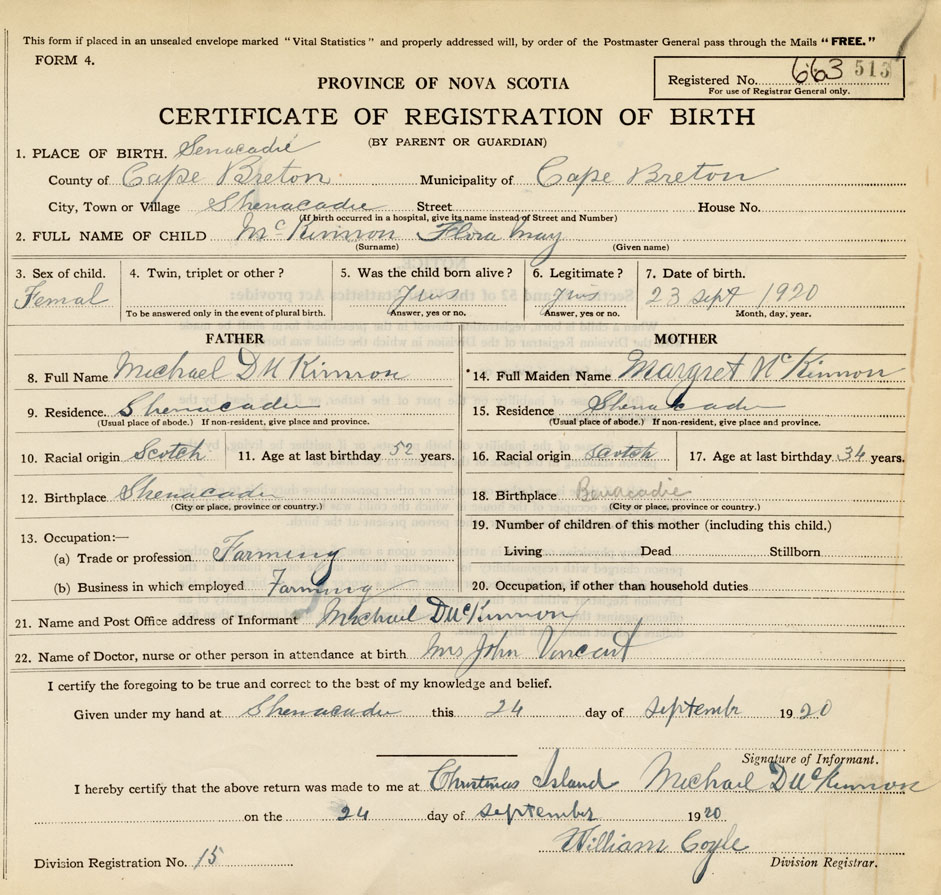 This form if placed in an unsealed envelope marked "Vital Statistics" and properly addressed will, by order of the Postmaster General pass through the Mails "FREE."
FORM 4.
Registered No. 663 513
For use of Registrar General only.
PROVINCE OF NOVA SCOTIA
CERTIFICATE OF REGISTRATION OF BIRTH
(BY PARENT OR GUARDIAN)
1. PLACE OF BIRTH. Senacadie
County of Cape Breton Municipality of Cape Breton
City, Town or Village Shenacadie Street House No.
(If birth occurred in a hospital, give its name instead of Street and Number)
2. FULL NAME OF CHILD McKinnon Flora May
(Surname) (Given name)
3. Sex of child. 4. Twin, triplet or other? 5. Was the child born alive? 6. Legitimate? 7. Date of birth.
Femal 23 Sept 1920
To be answered only in the event of plural birth. Answer, yes or no. Answer, yes or no. Month, day, year.
FATHER MOTHER
8. Full Name Michael D McKinnon 14. Full Maiden Name Margret McKinnon
9. Residence. Shenacadie 15. Residence Shenacadie
(Usual place of abode.) If non-resident, give place and province. (Usual place of abode.) If non-resident, give place and province.
10. Racial origin Scotch 11. Age at last birthday 52 years. 16. Racial origin Scotch 17. Age at last birthday 34 years.
12. Birthplace Shenacadie 18. Birthplace Benacadie
(City or place, province or country.) (City or place, province or country.)
13. Occupation:— 19. Number of children of this mother (including this child.)
(a) Trade or profession Farming Living Dead Stillborn
(b) Business in which employed Farming 20. Occupation, if other than household duties
21. Name and Post Office address of Informant Michael D McKinnon
22. Name of Doctor, nurse or other person in attendance at birth Mrs John Vincent
I certify the foregoing to be true and correct to the best of my knowledge and belief.
Given under my hand at Shenacadie this 24 day of Septembr 1920
Signature of Informant.
I hereby certify that the above return was made to me at Christmas Island Michael D McKinnon
on the 24 day of September 1920
William Coyle
Division Registration No. 15 Division Registrar.